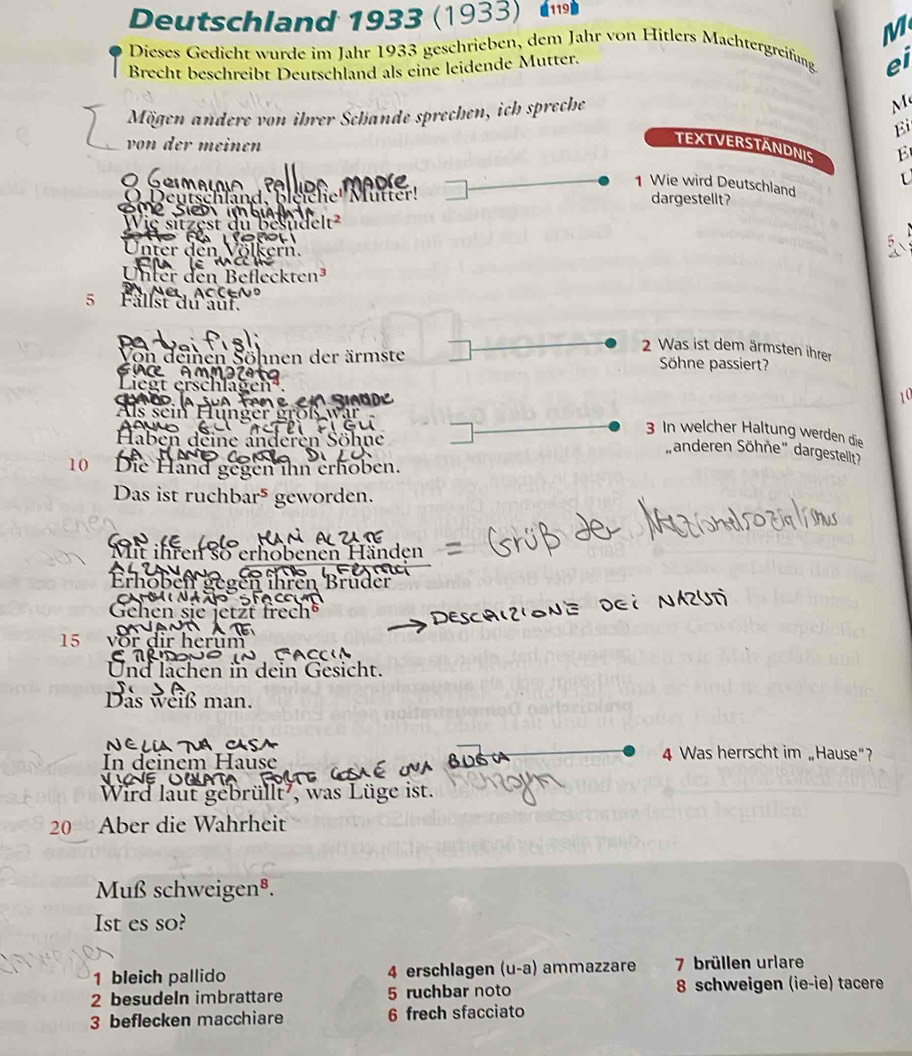 Deutschland 1933 (1933) 119
Dieses Gedicht wurde im Jahr 1933 geschrieben, dem Jahr von Hitlers Machtergreifung.
Brecht beschreibt Deutschland als eine leidende Mutter.
Mögen andere von ihrer Schande sprechen, ich spreche
von der meinen
TEXTVERSTÄNDNIS
O GERMANIA PALLIDA MADRE
O Deutschland, bleiche¹ Mutter!
1 Wie wird Deutschland
dargestellt?
COME SIEDI IMBRATTATA
Wie sitzest du besudelt²
Unter den Völkern.
FRA LE MACCHIE
Unter den Befleckten³
5 Fällst du auf.
Von deinen Söhnen der ärmste
2 Was ist dem ärmsten ihrer
Söhne passiert?
GIACE AMMAZZATO
Liegt erschlagen⁴.
QUANDO LA SUA FAME ERA GRANDE
Als sein Hunger groß war
HANNO GLI ALTRI FIGLI
Haben deine anderen Söhne
3 In welcher Haltung werden die
„anderen Söhne" dargestellt?
LA MANO CONTRO DI LUI
10 Die Hand gegen ihn erhoben.
Das ist ruchbar⁵ geworden.
CON LE LORO MANI ALZATE
Mit ihren so erhobenen Händen = Gruß der Nazionalsozialismus
ALZAVANO CONTRO I FRATELLI
Erhoben gegen ihren Bruder
Gehen sie jetzt frech⁶
→ DESCRIZIONE DEI NAZISTI
DAVANTI A TE
15 vor dir herum
E RIDONO IN FACCIA
Und lachen in dein Gesicht.
SI SA
Das weiß man.
NELLA TUA CASA
In deinem Hause
4 Was herrscht im „Hause"?
VIENE URLATA FORTE COS'È UNA BUGIA
Wird laut gebrüllt⁷, was Lüge ist.
20 Aber die Wahrheit
Muß schweigen⁸.
Ist es so?
1 bleich pallido
2 besudeln imbrattare
3 beflecken macchiare
4 erschlagen (u-a) ammazzare
5 ruchbar noto
6 frech sfacciato
7 brüllen urlare
8 schweigen (ie-ie) tacere